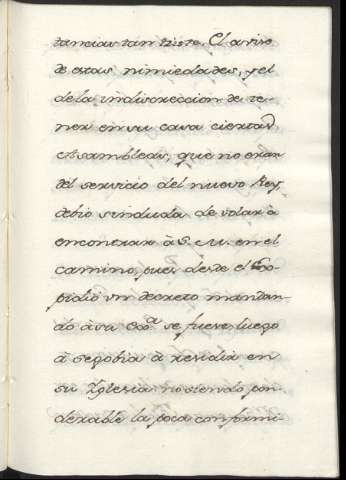 tancias tan triste. El aviso
de estas nimiedades, y el
dela indiscreccion de te-
ner en su casa ciertas
Asambleas, que no eran
del servicio del nuevo Rey,
debio sinduda de volar à
encontrar à S. M. en el
camino, pues desde el
pidió un decreto mandan-
do à su Exa. se fuese luego
à Segobia à residir en
su Yglesia no siendo pon-
derable la poca conformi-